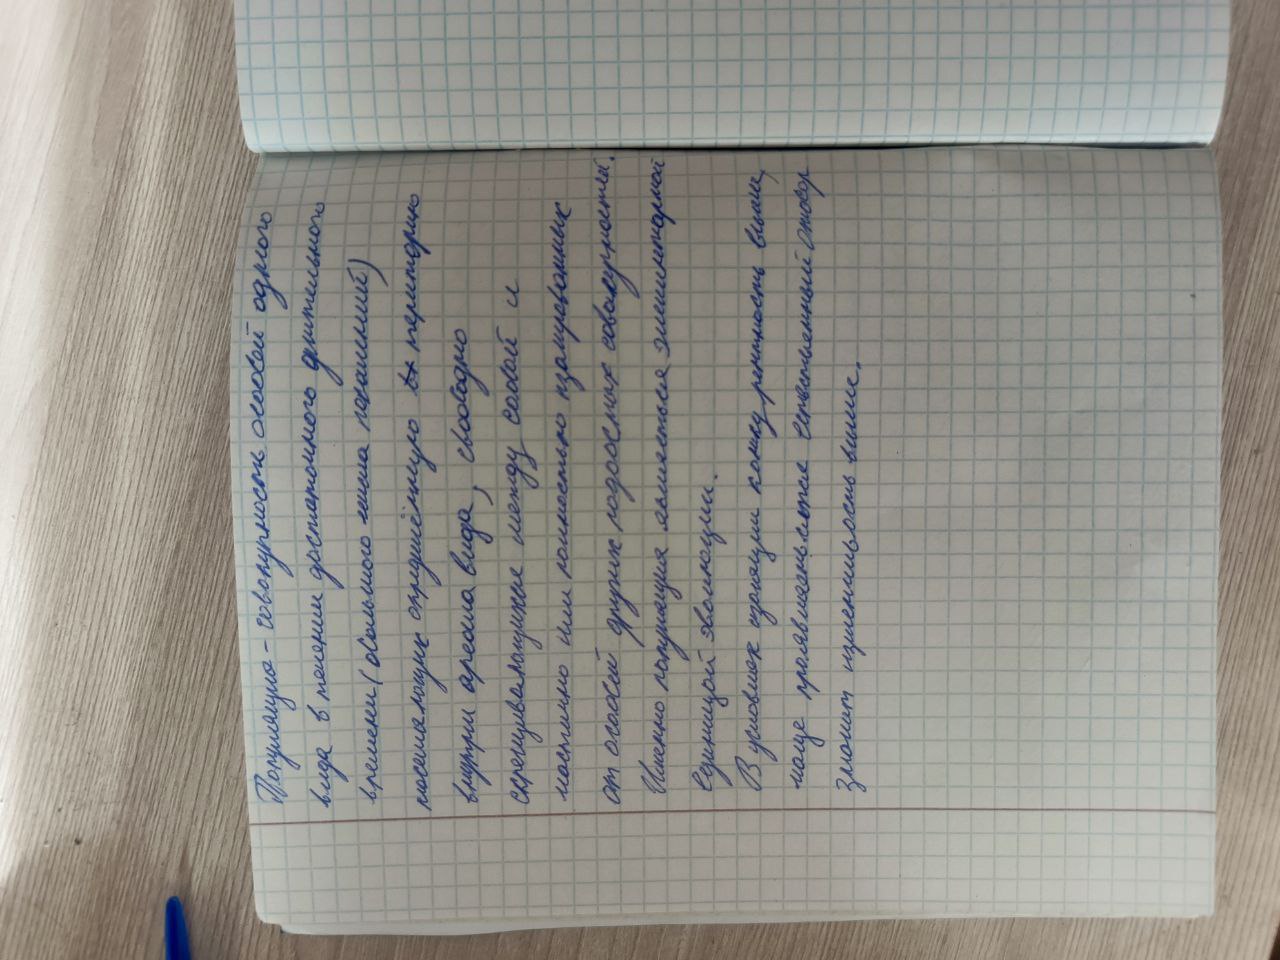 Популяция - совокупность особей одного
вида в течении достаточного длительного
времени (большого числа поколений)
населяющих определённую территорию
внутри ареала вида, свободно
скрещивающихся между собой и
частично или полностью изолированных
от особей других подобных совокупностей.
Именно популяция является элементарной
единицой эволюции.
В условиях изоляции конкурентность выше,
чаще проявляется естественный отбор
значит изменчивость выше.